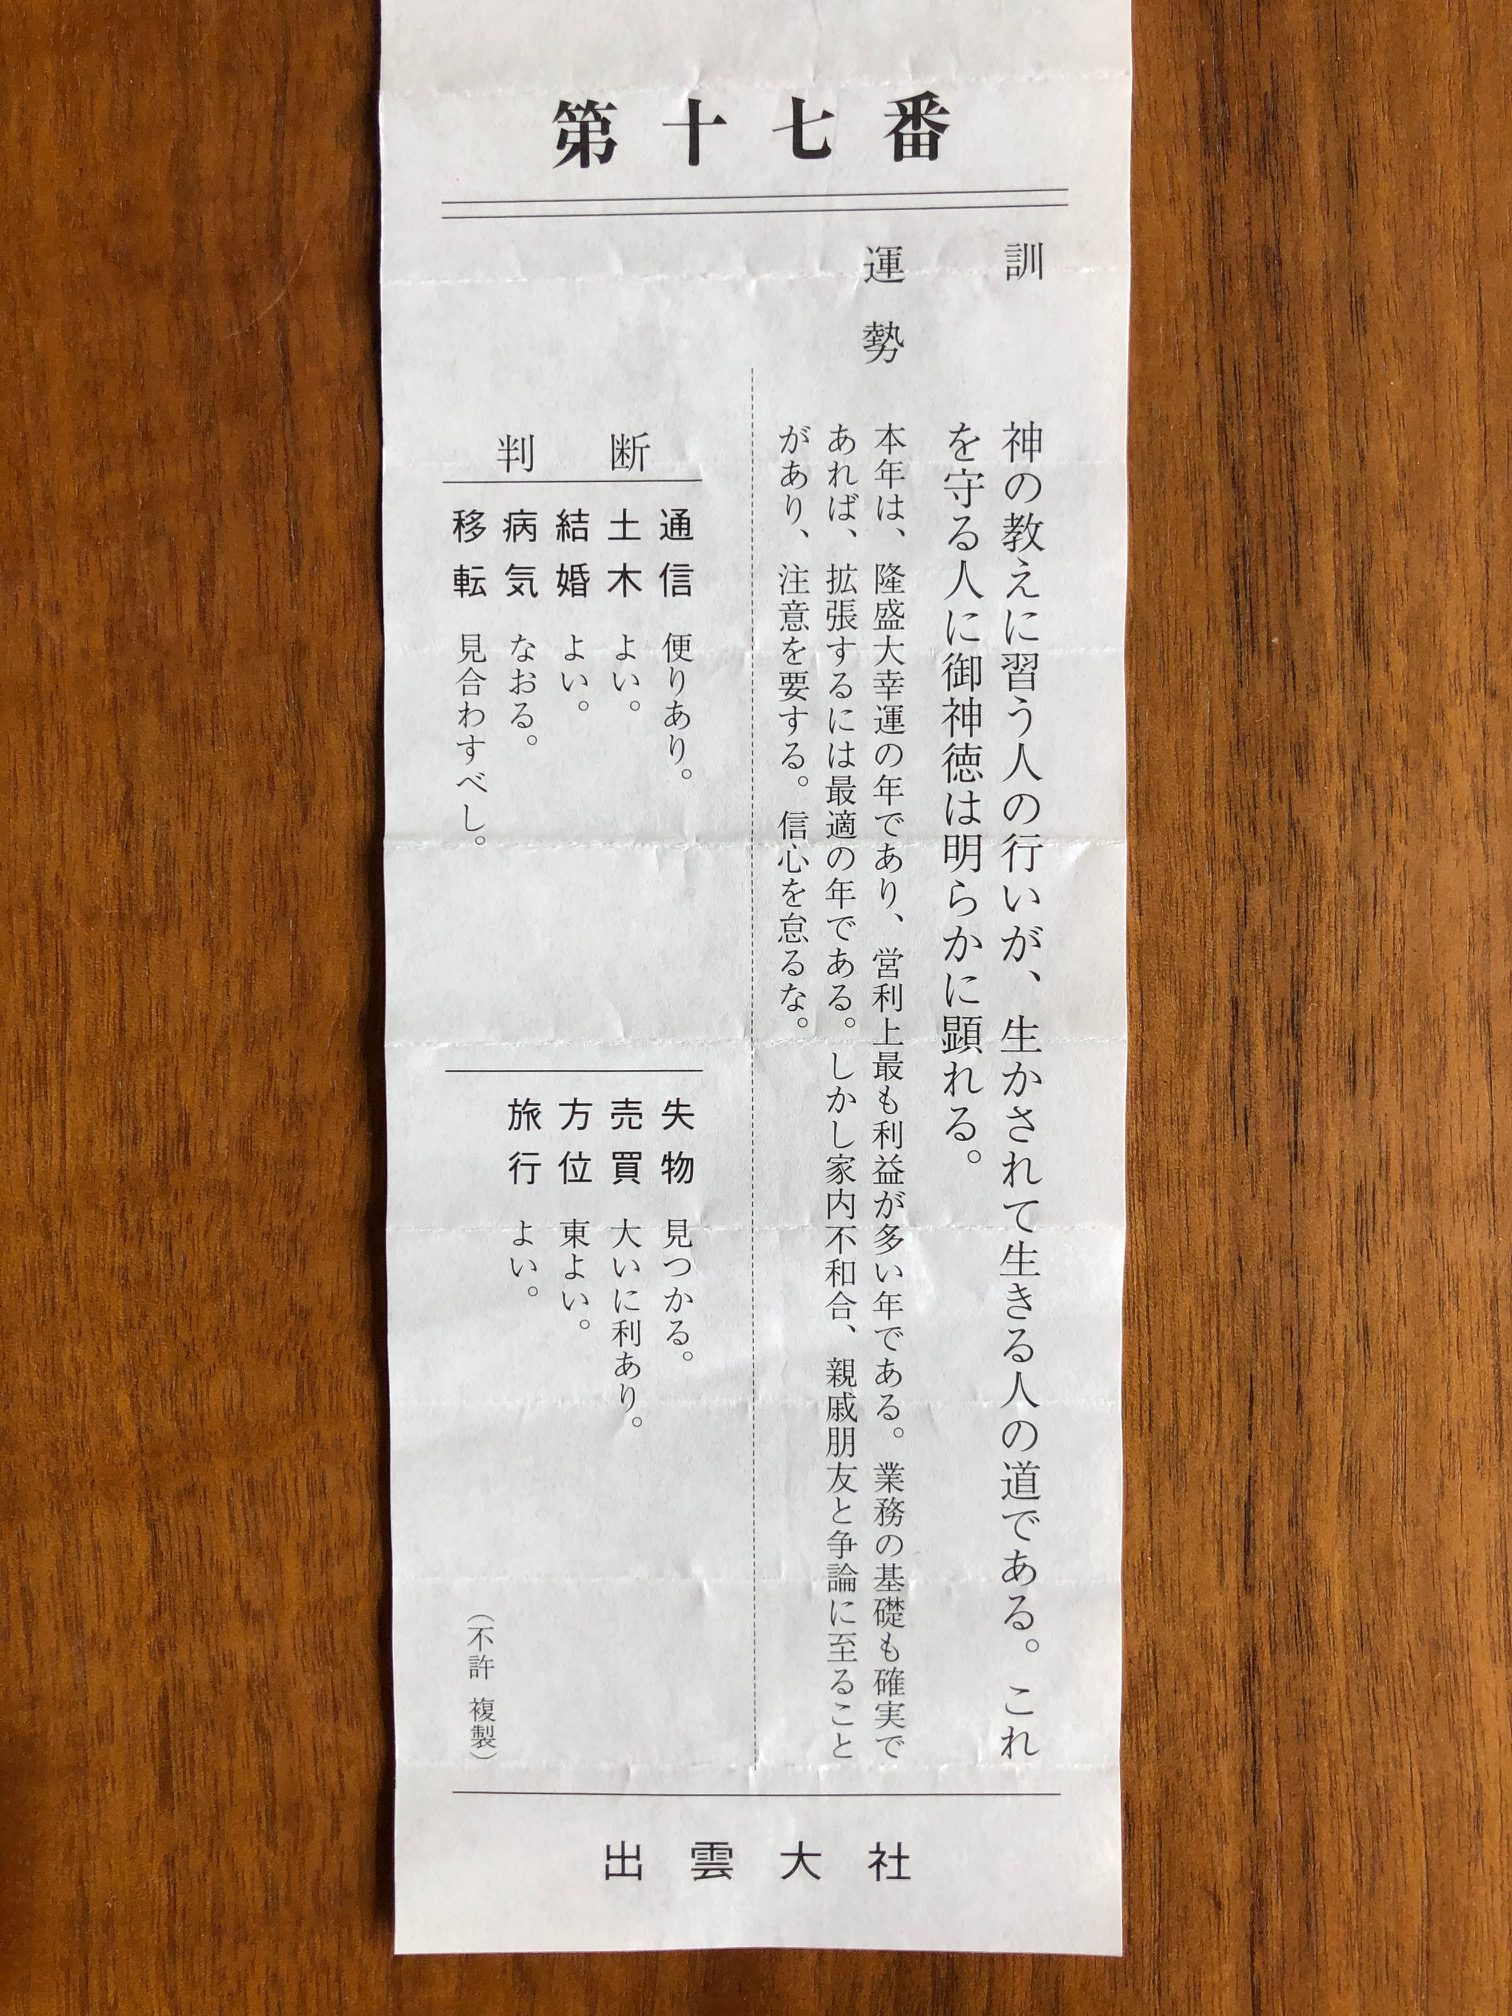 第十七番
訓
神の教えに習う人の行いが、生かされて生きる人の道である。これ
を守る人に御神徳は明らかに顕れる。
運勢
本年は、隆盛大幸運の年であり、営利上最も利益が多い年である。業務の基礎も確実で
あれば、拡張するには最適の年である。しかし家内不和合、親戚朋友と争論に至ること
があり、注意を要する。信心を怠るな。
判断
通信 便りあり。
土木 よい。
結婚 よい。
病気 なおる。
移転 見合わすべし。
失物 見つかる。
売買 大いに利あり。
方位 東よい。
旅行 よい。
（不許 複製）
出雲大社